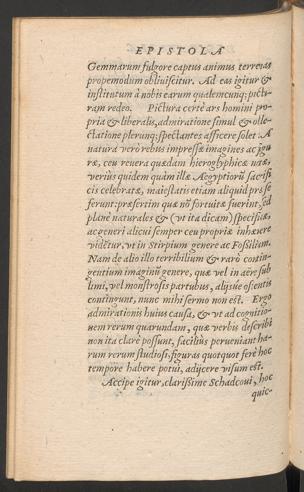 EPISTOLA
Gemmarum fulgore captus animus terrenas
propemodum obliuiscitur. Ad eas igitur &
institutum à nobis earum qualemcunq; pictu-
ram redeo. Pictura certè ars homini pro-
pria & liberalis, admiratione simul & oble-
ctatione plerunq; spectantes afficere solet. A
natura verò rebus impressæ imagines ac figu
ræ, ceu reuera quædam hieroglyphicæ notæ,
veriùs quidem quàm illæ Aegyptiorũ sacrifi
cis celebratæ, maiestatis etiam aliquid præ se
ferunt: præsertim quæ nõ fortuitæ fuerint, sed
planè naturales & (vt ita dicam) specificæ,
ac generi alicui semper ceu propriæ inhærere
videtur, vt in Stirpium genere ac Fossilium.
Nam de alio illo terribilium & rarò contin-
gentium imaginũ genere, quæ vel in aëre sub
limi, vel monstrosis partubus, aliisue ostentis
contingunt, nunc mihi sermo non est. Ergo
admirationis huius causa, & vt ad cognitio-
nem rerum quarundam, quæ verbis describi
non ita clarè possunt, faciliùs perueniant ha-
rum rerum studiosi, figuras quotquot ferè hoc
tempore habere potui, adijcere visum est.
Accipe igitur, clarissime Schadcoui, hoc
quic-